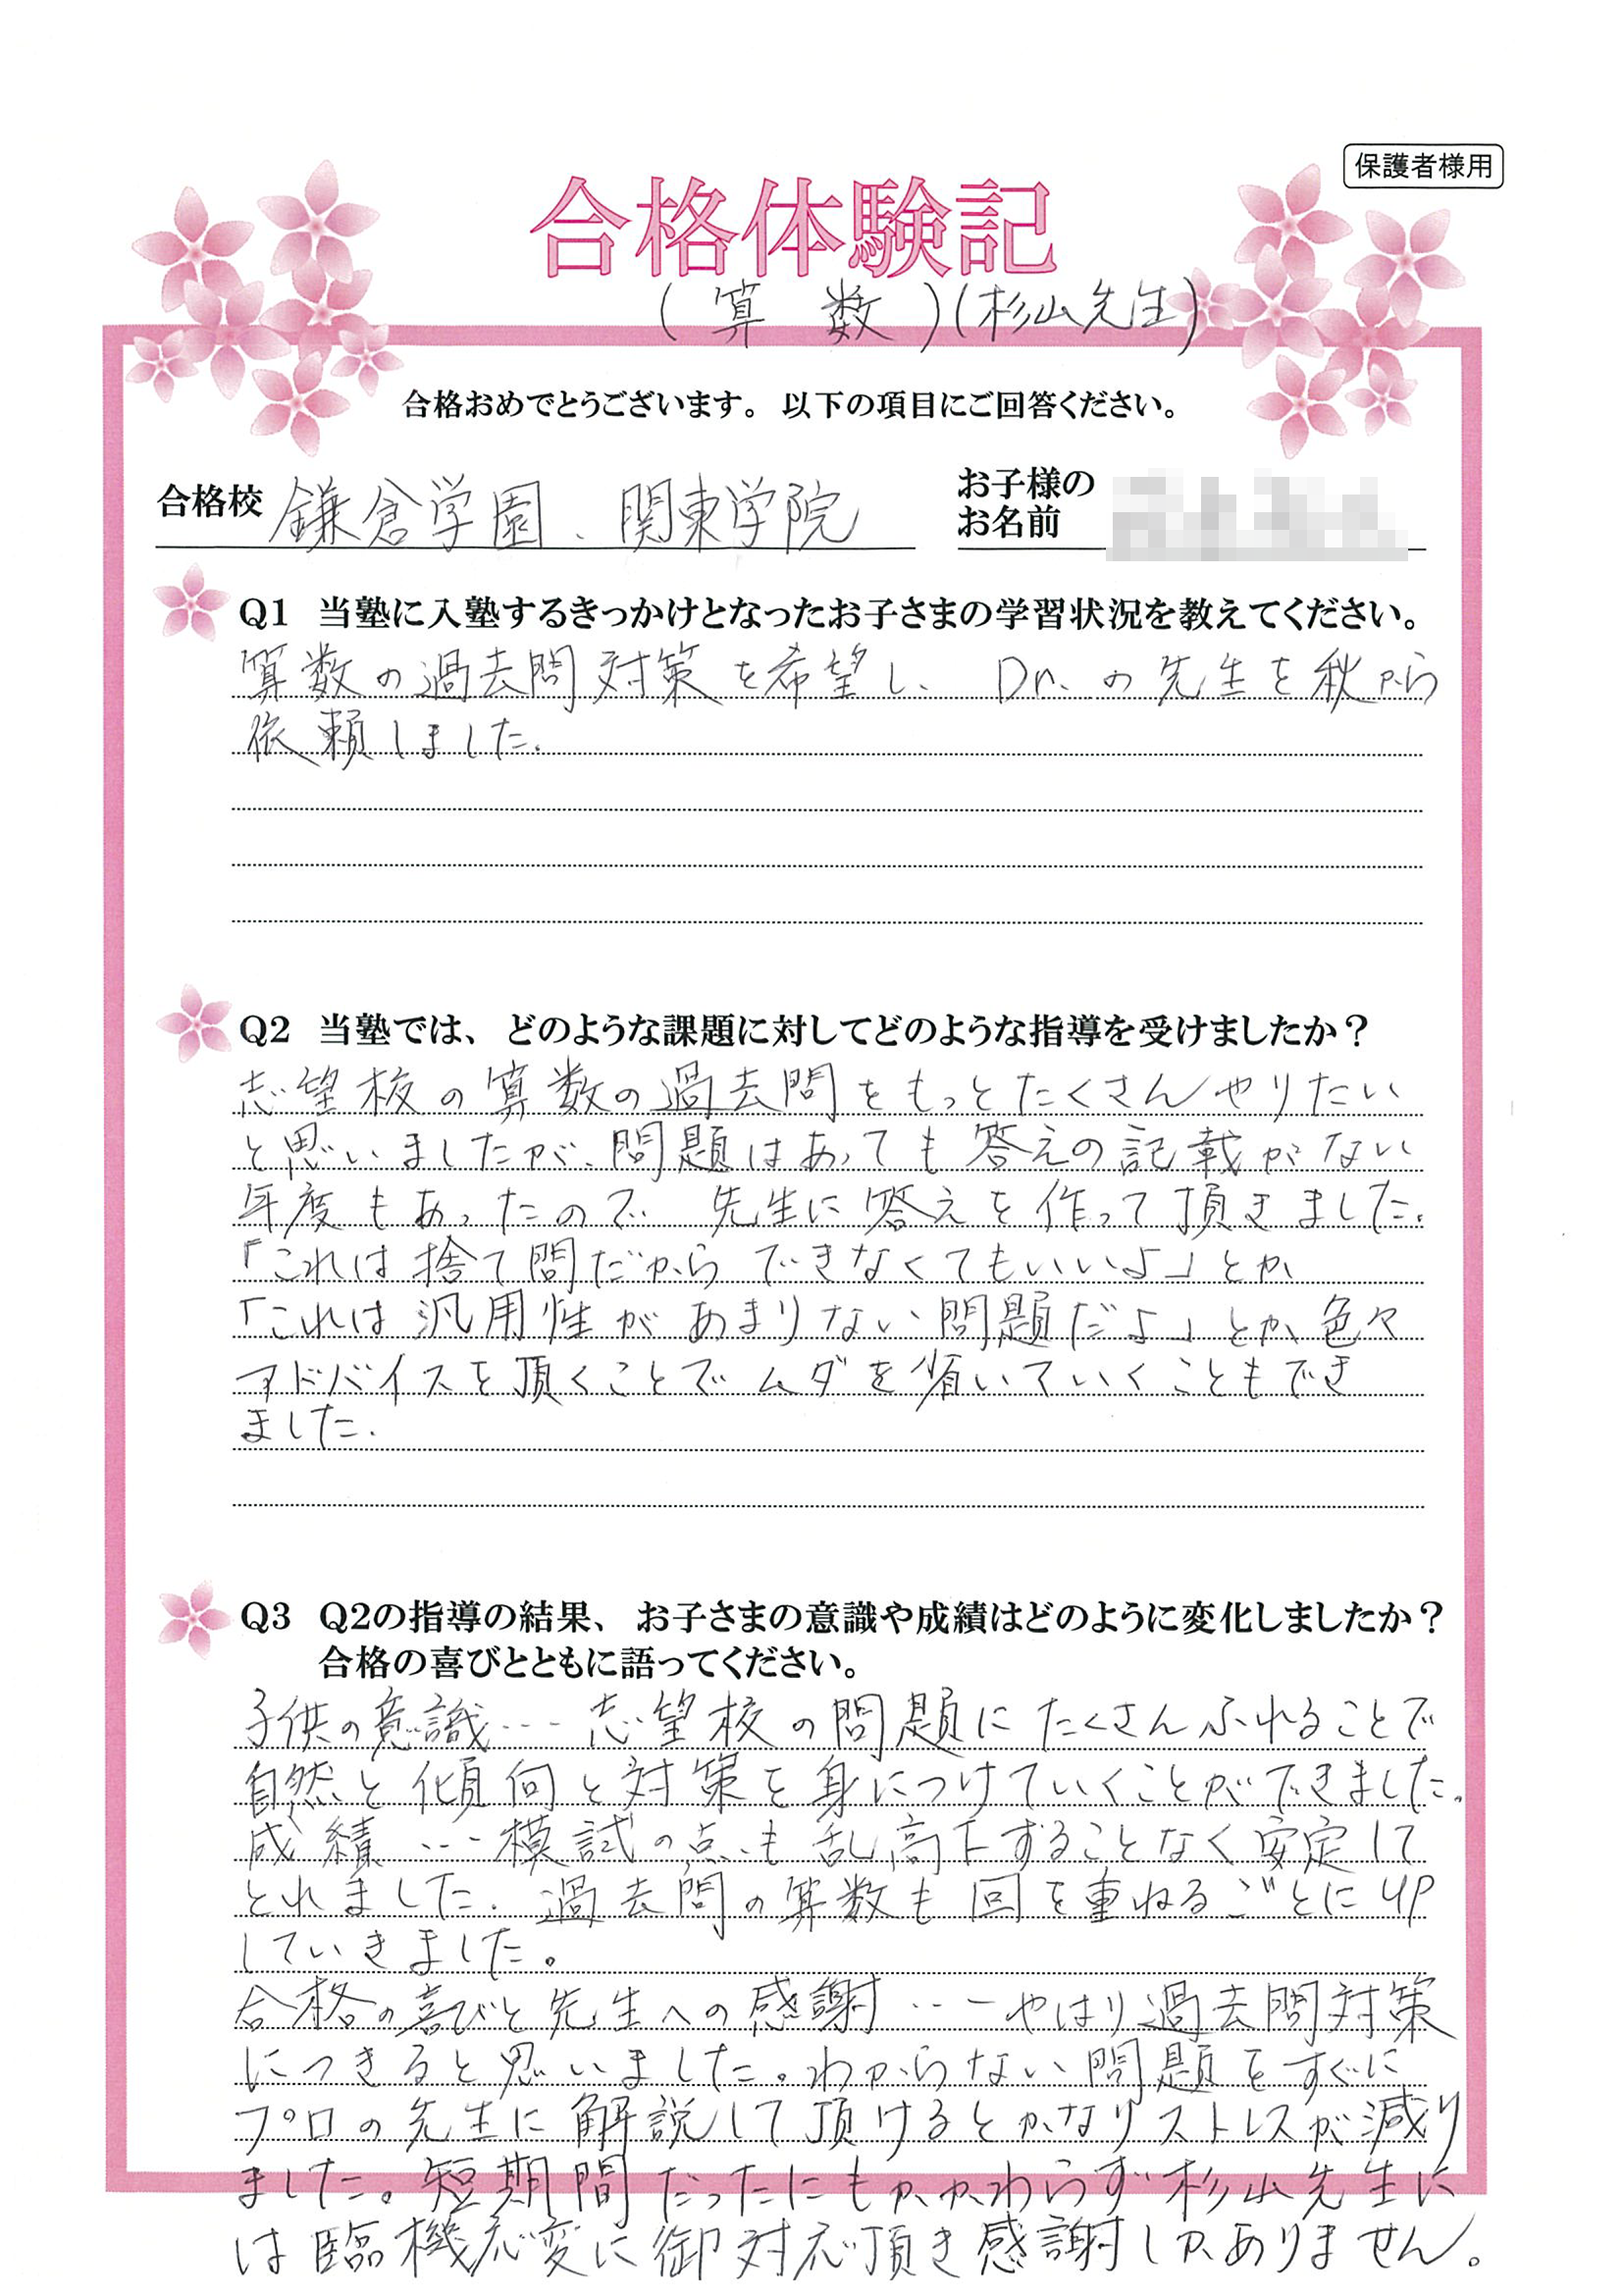 保護者様用
合格体験記
(算 数)(杉山先生)
合格おめでとうございます。 以下の項目にご回答ください。
合格校 鎌倉学園、関東学院
お子様の
お名前
Q1 当塾に入塾するきっかけとなったお子さまの学習状況を教えてください。
算数の過去問対策を希望し、 Dr.の先生を秋から
依頼しました。
Q2 当塾では、どのような課題に対してどのような指導を受けましたか？
志望校の算数の過去問をもっとたくさんやりたい
と思いましたが、問題はあっても答えの記載がない
年度もあったので 先生に答えを作って頂きました。
「これは捨て問だから できなくてもいいよ」とか
「これは汎用性があまりない問題だよ」とか、色々
アドバイスを頂くことでムダを省いていくこともでき
ました。
Q3 Q2の指導の結果、お子さまの意識や成績はどのように変化しましたか？
合格の喜びとともに語ってください。
子供の意識… 志望校の問題にたくさんふれることで
自然と傾向と対策を身につけていくことができました。
成績 … 模試の点も乱高下することなく安定して
とれました。過去問の算数も回を重ねるごとにUP
していきました。
合格の喜びと先生への感謝 … やはり過去問対策
につきると思いました。わからない問題をすぐに
プロの先生に解説して頂けるとかなりストレスが減り
ました。短期間だったにもかかわらず杉山先生に
は臨機応変に御対応頂き感謝しかありません。